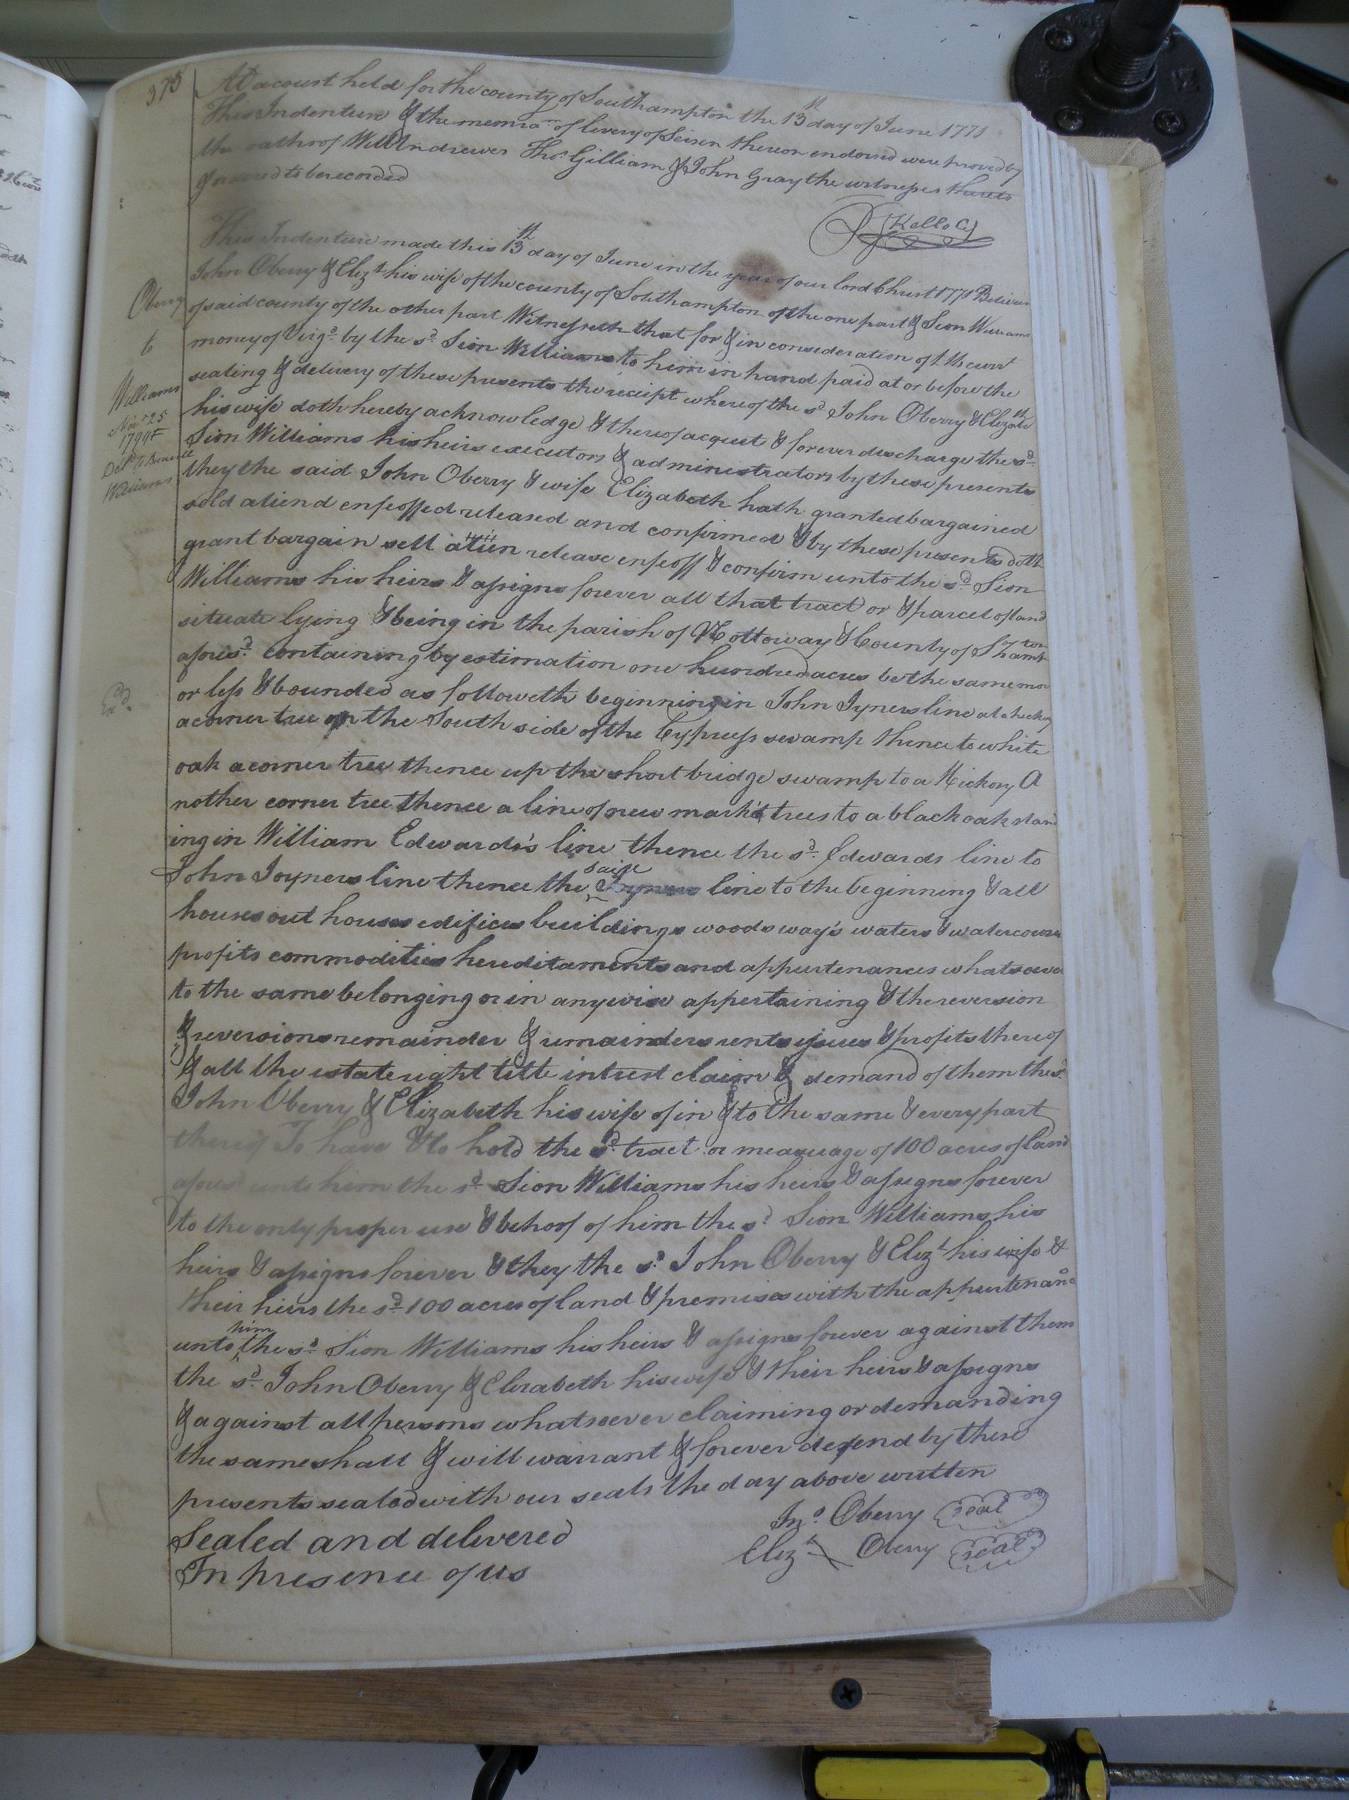 375
At a court held for the county of Southampton the 13th day of June 1771
This Indenture & the memio of livery of Seisen thereon endorsed were proved by
the oaths of Will Andrews Thos. Gilliam & John Gray the witnesses thereto
& ordered to be recorded
R Kello C
This Indenture made this 13th day of June in the year of our lord Christ 1771 Between
John Oberry & Elizt. his wife of the county of Southampton of the one part & Sion Williams
of said county of the other part Witnesseth that for & in consideration of
money of Virga. by the sd. Sion Williams to him in hand paid at or before the
sealing & delivery of these presents the receipt whereof the sd John Oberry & Elizabth
his wife doth hereby acknowledge & thereof acquit & forever discharge the sd.
Sion Williams his heirs executors & administrators by these presents
they the said John Oberry & wife Elizabeth hath granted bargained
sold aliend enfeoffed released and confirmed & by these presents doth
grant bargain sell alien release enfeoff & confirm unto the sd Sion
Williams his heirs & assigns forever all that tract or & parcel of land
situate lying & being in the parish of Nottoway & County of Sthamton
aforesd. containing by estimation one hundred acres be the same mor
or less & bounded as followeth beginning in John Jyners line at
a corner tree on the South side of the Cypress swamp thence to white
oak a corner tree thence up the short bridge swamp to a Hickory A
nother corner tree thence a line of new mark'd trees to a black oak stand
ing in William Edwards's line thence the sd. Edwards line to
John Joyners line thence the said Jyners line to the beginning & all
houses out houses edifices buildings woods way's waters & watercourses
profits commodities hereditaments and appurtenances whatsoever
to the same belonging or in anywise appertaining & the reversion
& reversions remainder & remainders rents issues & profits thereof
& all the estate right title intrest claim & demand of them the sd
John Oberry & Elizabeth his wife of in & to the same & every part
thereof To have & to hold the sd. tract or meauage of 100 acres of land
aforesd unto him the sd. Sion Williams his heirs & assigns forever
to the only proper use & behoof of him the sd Sion Williams his
heirs & assigns forever & they the sd. John Oberry & Elizt. his wife &
their heirs the sd. 100 acres of land & premises with the appurtenanc
unto him the sd. Sion Williams his heirs & assigns forever against them
the sd. John Oberry & Elizabeth his wife & their heirs & assigns
& against all persons whatsoever claiming or demanding
the same shall & will warrant & forever defend by these
presents sealed with our seals the day above written
Sealed and delivered
In presence of us
Jno. Oberry seal
Elizt. Oberry seal
Oberry
to
Williams
Novr. 25
Williams
Exd.